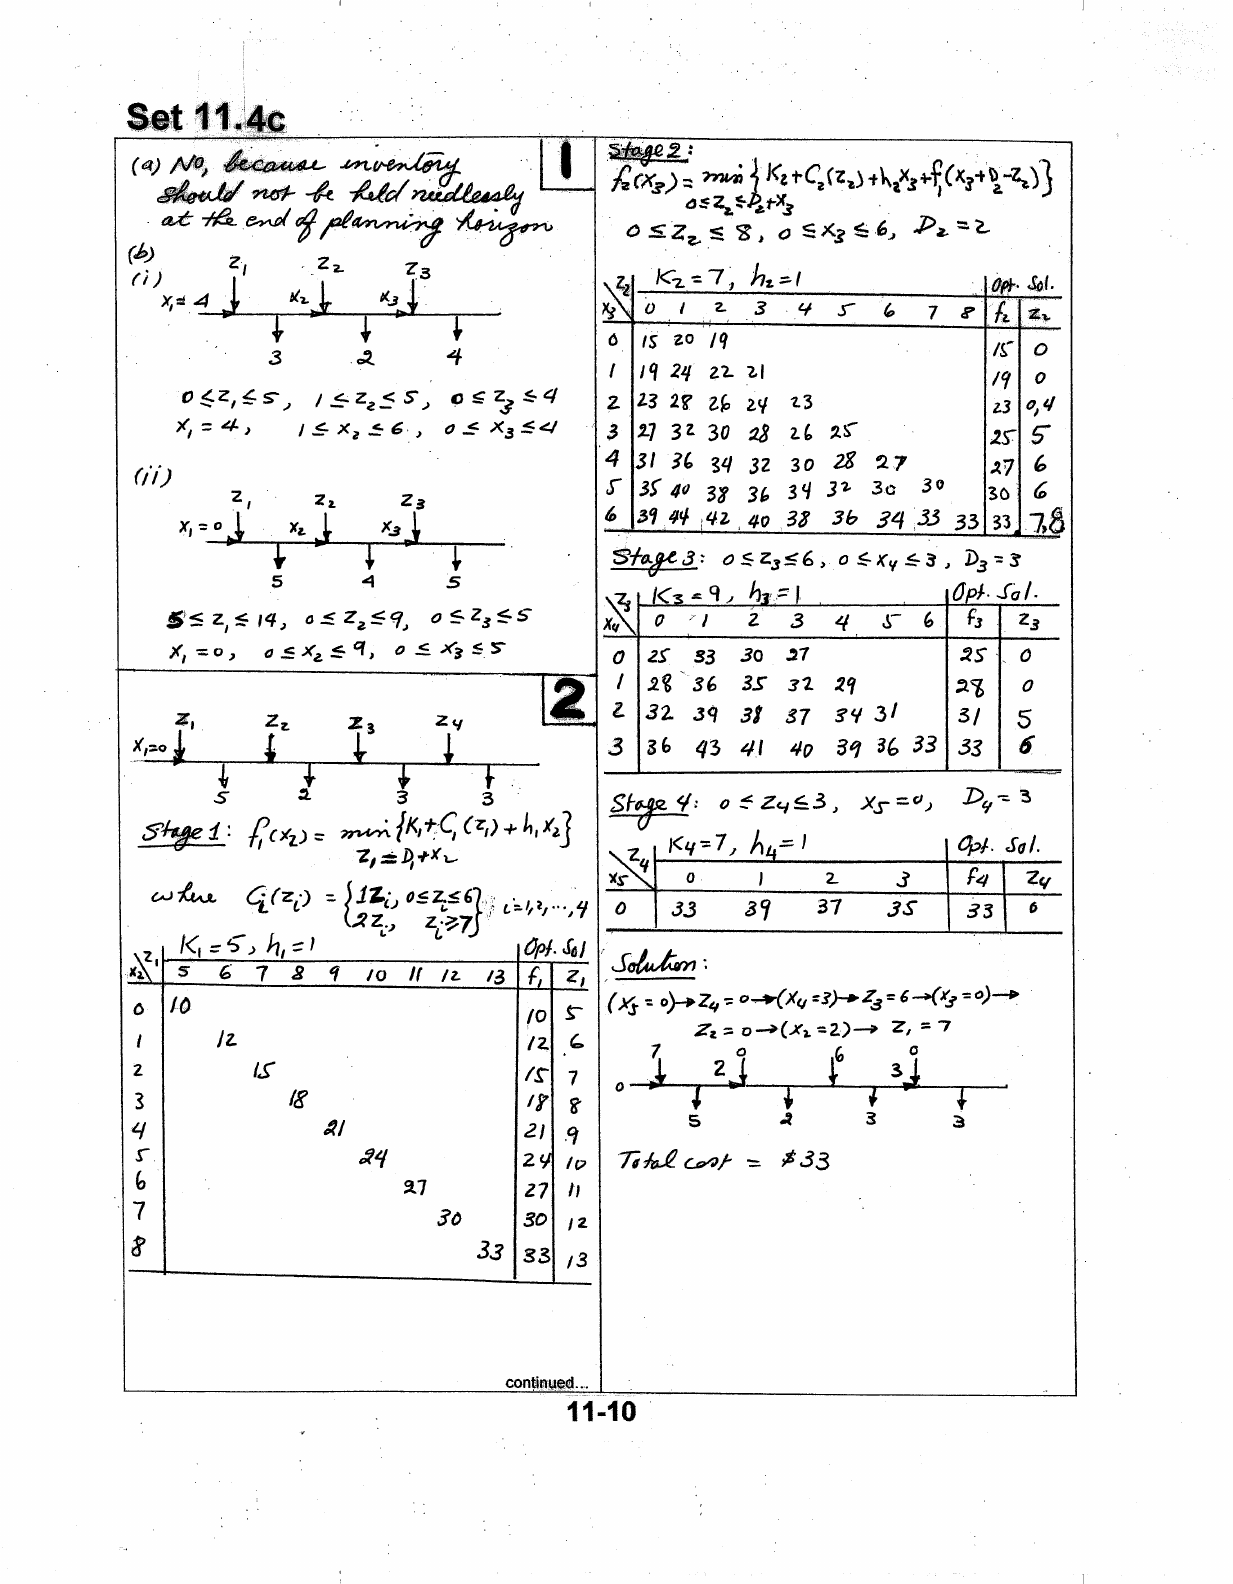 Set 11.4c
1
(a) No, because inventory
should not be held needlessly
at the end of planning horizon
(b)
(i)
z₁ z₂ z₃
x₁ = 4 x₂ x₃
3 2 4
0 ≤ z₁ ≤ 5, 1 ≤ z₂ ≤ 5, 0 ≤ z₃ ≤ 4
x₁ = 4, 1 ≤ x₂ ≤ 6, 0 ≤ x₃ ≤ 4
(ii)
z₁ z₂ z₃
x₁ = 0 x₂ x₃
5 4 5
5 ≤ z₁ ≤ 14, 0 ≤ z₂ ≤ 9, 0 ≤ z₃ ≤ 5
x₁ = 0, 0 ≤ x₂ ≤ 9, 0 ≤ x₃ ≤ 5
2
z₁ z₂ z₃ z₄
x₁=0
5 2 3 3
Stage 1: f₁(x₂) = min {K₁+C₁(z₁) + h₁x₂}
z₁ = D₁+x₂
where Cᵢ(zᵢ) = {1zᵢ, 0≤zᵢ≤6
{2zᵢ, zᵢ≥7} i=1,2,...,4
K₁ = 5, h₁ = 1 Opt. Sol
x₂\z₁ 5 6 7 8 9 10 11 12 13 f₁ z₁
0 10 10 5
1 12 12 6
2 15 15 7
3 18 18 8
4 21 21 9
5 24 24 10
6 27 27 11
7 30 30 12
8 33 33 13
continued...
Stage 2:
f₂(x₃) = min {K₂+C₂(z₂)+h₂x₃+f₁(x₃+D₂-z₂)}
0≤z₂≤D₂+x₃
0 ≤ z₂ ≤ 8, 0 ≤ x₃ ≤ 6, D₂ = 2
K₂ = 7, h₂ = 1 Opt. Sol.
x₃\z₂ 0 1 2 3 4 5 6 7 8 f₂ z₂
0 15 20 19 15 0
1 19 24 22 21 19 0
2 23 28 26 24 23 23 0,4
3 27 32 30 28 26 25 25 5
4 31 36 34 32 30 28 27 27 6
5 35 40 38 36 34 32 30 30 30 6
6 39 44 42 40 38 36 34 33 33 33 7,8
Stage 3: 0 ≤ z₃ ≤ 6, 0 ≤ x₄ ≤ 3, D₃ = 3
K₃ = 9, h₃ = 1 Opt. Sol.
x₄\z₃ 0 1 2 3 4 5 6 f₃ z₃
0 25 33 30 27 25 0
1 28 36 35 32 29 28 0
2 32 39 38 37 34 31 31 5
3 36 43 41 40 39 36 33 33 6
Stage 4: 0 ≤ z₄ ≤ 3, x₅ = 0, D₄ = 3
K₄ = 7, h₄ = 1 Opt. Sol.
x₅\z₄ 0 1 2 3 f₄ z₄
0 33 39 37 35 33 0
Solution:
(x₅ = 0)→z₄ = 0→(x₄ = 3)→z₃ = 6→(x₃ = 0)→
z₂ = 0→(x₂ = 2)→ z₁ = 7
7 0 6 0
0 2 3
5 2 3 3
Total cost = $33
11-10